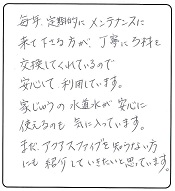 毎年、定期的に メンテナンスに
来て下さる方が、丁寧にろ材を
交換してくれているので
安心して 利用しています。
家じゅうの 水道水が 安心に
使えるのも 気に入っています。
まだ、アクアスファイブを知らない方
にも 紹介していきたいと思っています。